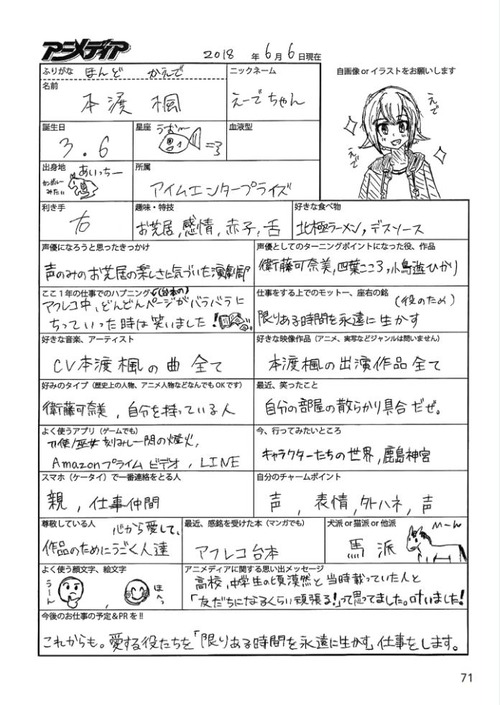 アニメディア
2018年6月6日現在
ふりがな ほんど かえで
名前
本渡 楓
ニックネーム
えーでちゃん
自画像 or イラストをお願いします
えで
えで
誕生日
3.6
星座
うおー
血液型
出身地
あいっちー
所属
アイムエンタープライズ
利き手
右
趣味・特技
お芝居,感情,赤子,舌
好きな食べ物
北極ラーメン,デスソース
声優になろうと思ったきっかけ
声のみのお芝居の楽しさに気づいた演劇部
声優としてのターニングポイントになった役、作品
衛藤可奈美,四葉こころ,小鳥遊ひかり
ここ1年の仕事でのハプニング
アフレコ中、(台本の)どんどんページがバラバラに
ちっていった時は笑いました!
仕事をする上でのモットー、座右の銘 (役のため)
限りある時間を永遠に生かす
好きな音楽、アーティスト
CV本渡楓の曲 全て
好きな映像作品(アニメ、実写などジャンルは問いません)
本渡楓の出演作品全て
好みのタイプ(歴史上の人物、アニメ人物などなんでもOKです)
衛藤可奈美,自分を持っている人
最近、笑ったこと
自分の部屋の散らかり具合だぜ。
よく使うアプリ(ゲームでも)
刀使ノ巫女 刻みし一閃の燈火,
Amazonプライムビデオ,LINE
今、行ってみたいところ
キャラクターたちの世界,鹿島神宮
スマホ(ケータイ)で一番連絡をとる人
親,仕事仲間
自分のチャームポイント
声,表情,外ハネ,声
尊敬している人
心から愛して、
作品のためにうごく人達
最近、感銘を受けた本(マンガでも)
アフレコ台本
犬派 or 猫派 or 他派
馬派
ひーん
よく使う顔文字、絵文字
うーん
ほへー
アニメディアに関する思い出メッセージ
高校,中学生の頃漠然と当時載っていた人と
「友だちになるくらい頑張る!」って思ってました。叶いました!
今後のお仕事の予定&PRを!!
これからも。愛する役たちを「限りある時間を永遠に生かす」仕事をします。
71